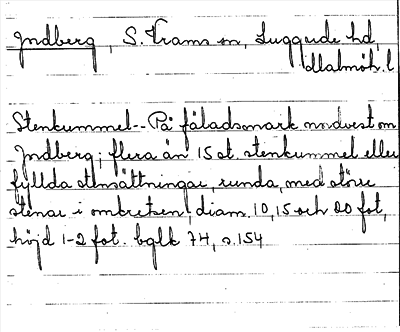 Jndberg, S. Vrams sn, Luggude hd,
Malmöh. l
Stenkummel-- På fäladsmark nordvest om
Jndberg; flera än 15 st. stenkummel eller
fyllda stensättningar, runda, med större
stenar i omkretsen, diam. 10, 15 och 20 fot,
höjd 1-2 fot. bglk 74, s. 154